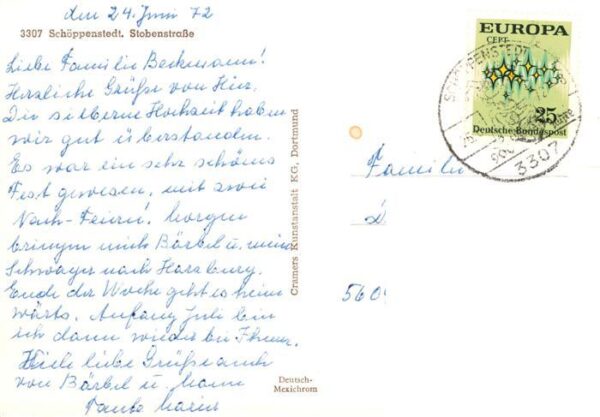 den 24. Juni 72
3307 Schöppenstedt. Stobenstraße
Liebe Familie Beckmann!
Herzliche Grüße von Hier.
Die silberne Hochzeit haben
wir gut überstanden.
Es war ein sehr schönes
Fest gewesen, mit zwei
Nach-Feiern! Morgen
bringen mich Bärbel u. mein
Schwager nach Harzburg.
Ende der Woche geht es heim
wärts. Anfang Juli bin
ich dann wieder bei Ihnen.
Viele liebe Grüße auch
von Bärbel u. Mann
Tante
Cramers Kunstanstalt KG, Dortmund
Deutsch-
Mexichrom
EUROPA
CEPT
25
Deutsche Bundespost
SCHÖPPENSTEDT
3307
Famili
560